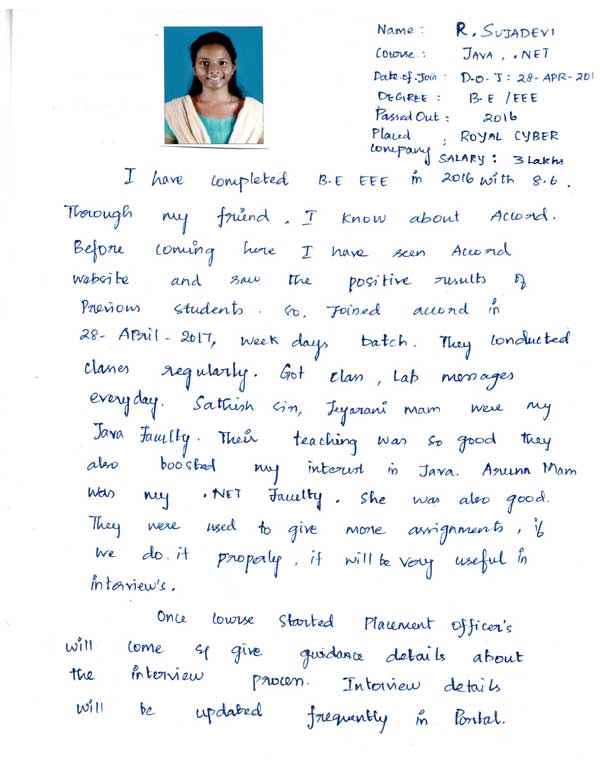 Name : R. SUJADEVI
Course : JAVA, .NET
Date of Join : D.O.J : 28-APR-201
DEGREE : B.E / EEE
Passed Out : 2016
Placed Company : ROYAL CYBER
SALARY : 3 Lakhs
I have completed B.E EEE in 2016 with 8.6.
Through my friend, I know about Accord.
Before coming here I have seen Accord
website and saw the positive results of
Previous students. So, Joined accord in
28-APRil-2017, week days batch. They conducted
classes regularly. Got class, Lab messages
everyday. Sathish Sir, Jeyarani mam were my
Java Faculty. Their teaching was so good they
also boosted my interest in Java. Aruna Mam
was my .NET Faculty. She was also good.
They were used to give more assignments, if
we do it properly, it will be very useful in
interview's.
Once course started Placement Officer's
will come & give guidance details about
the interview process. Interview details
will be updated frequently in Portal.